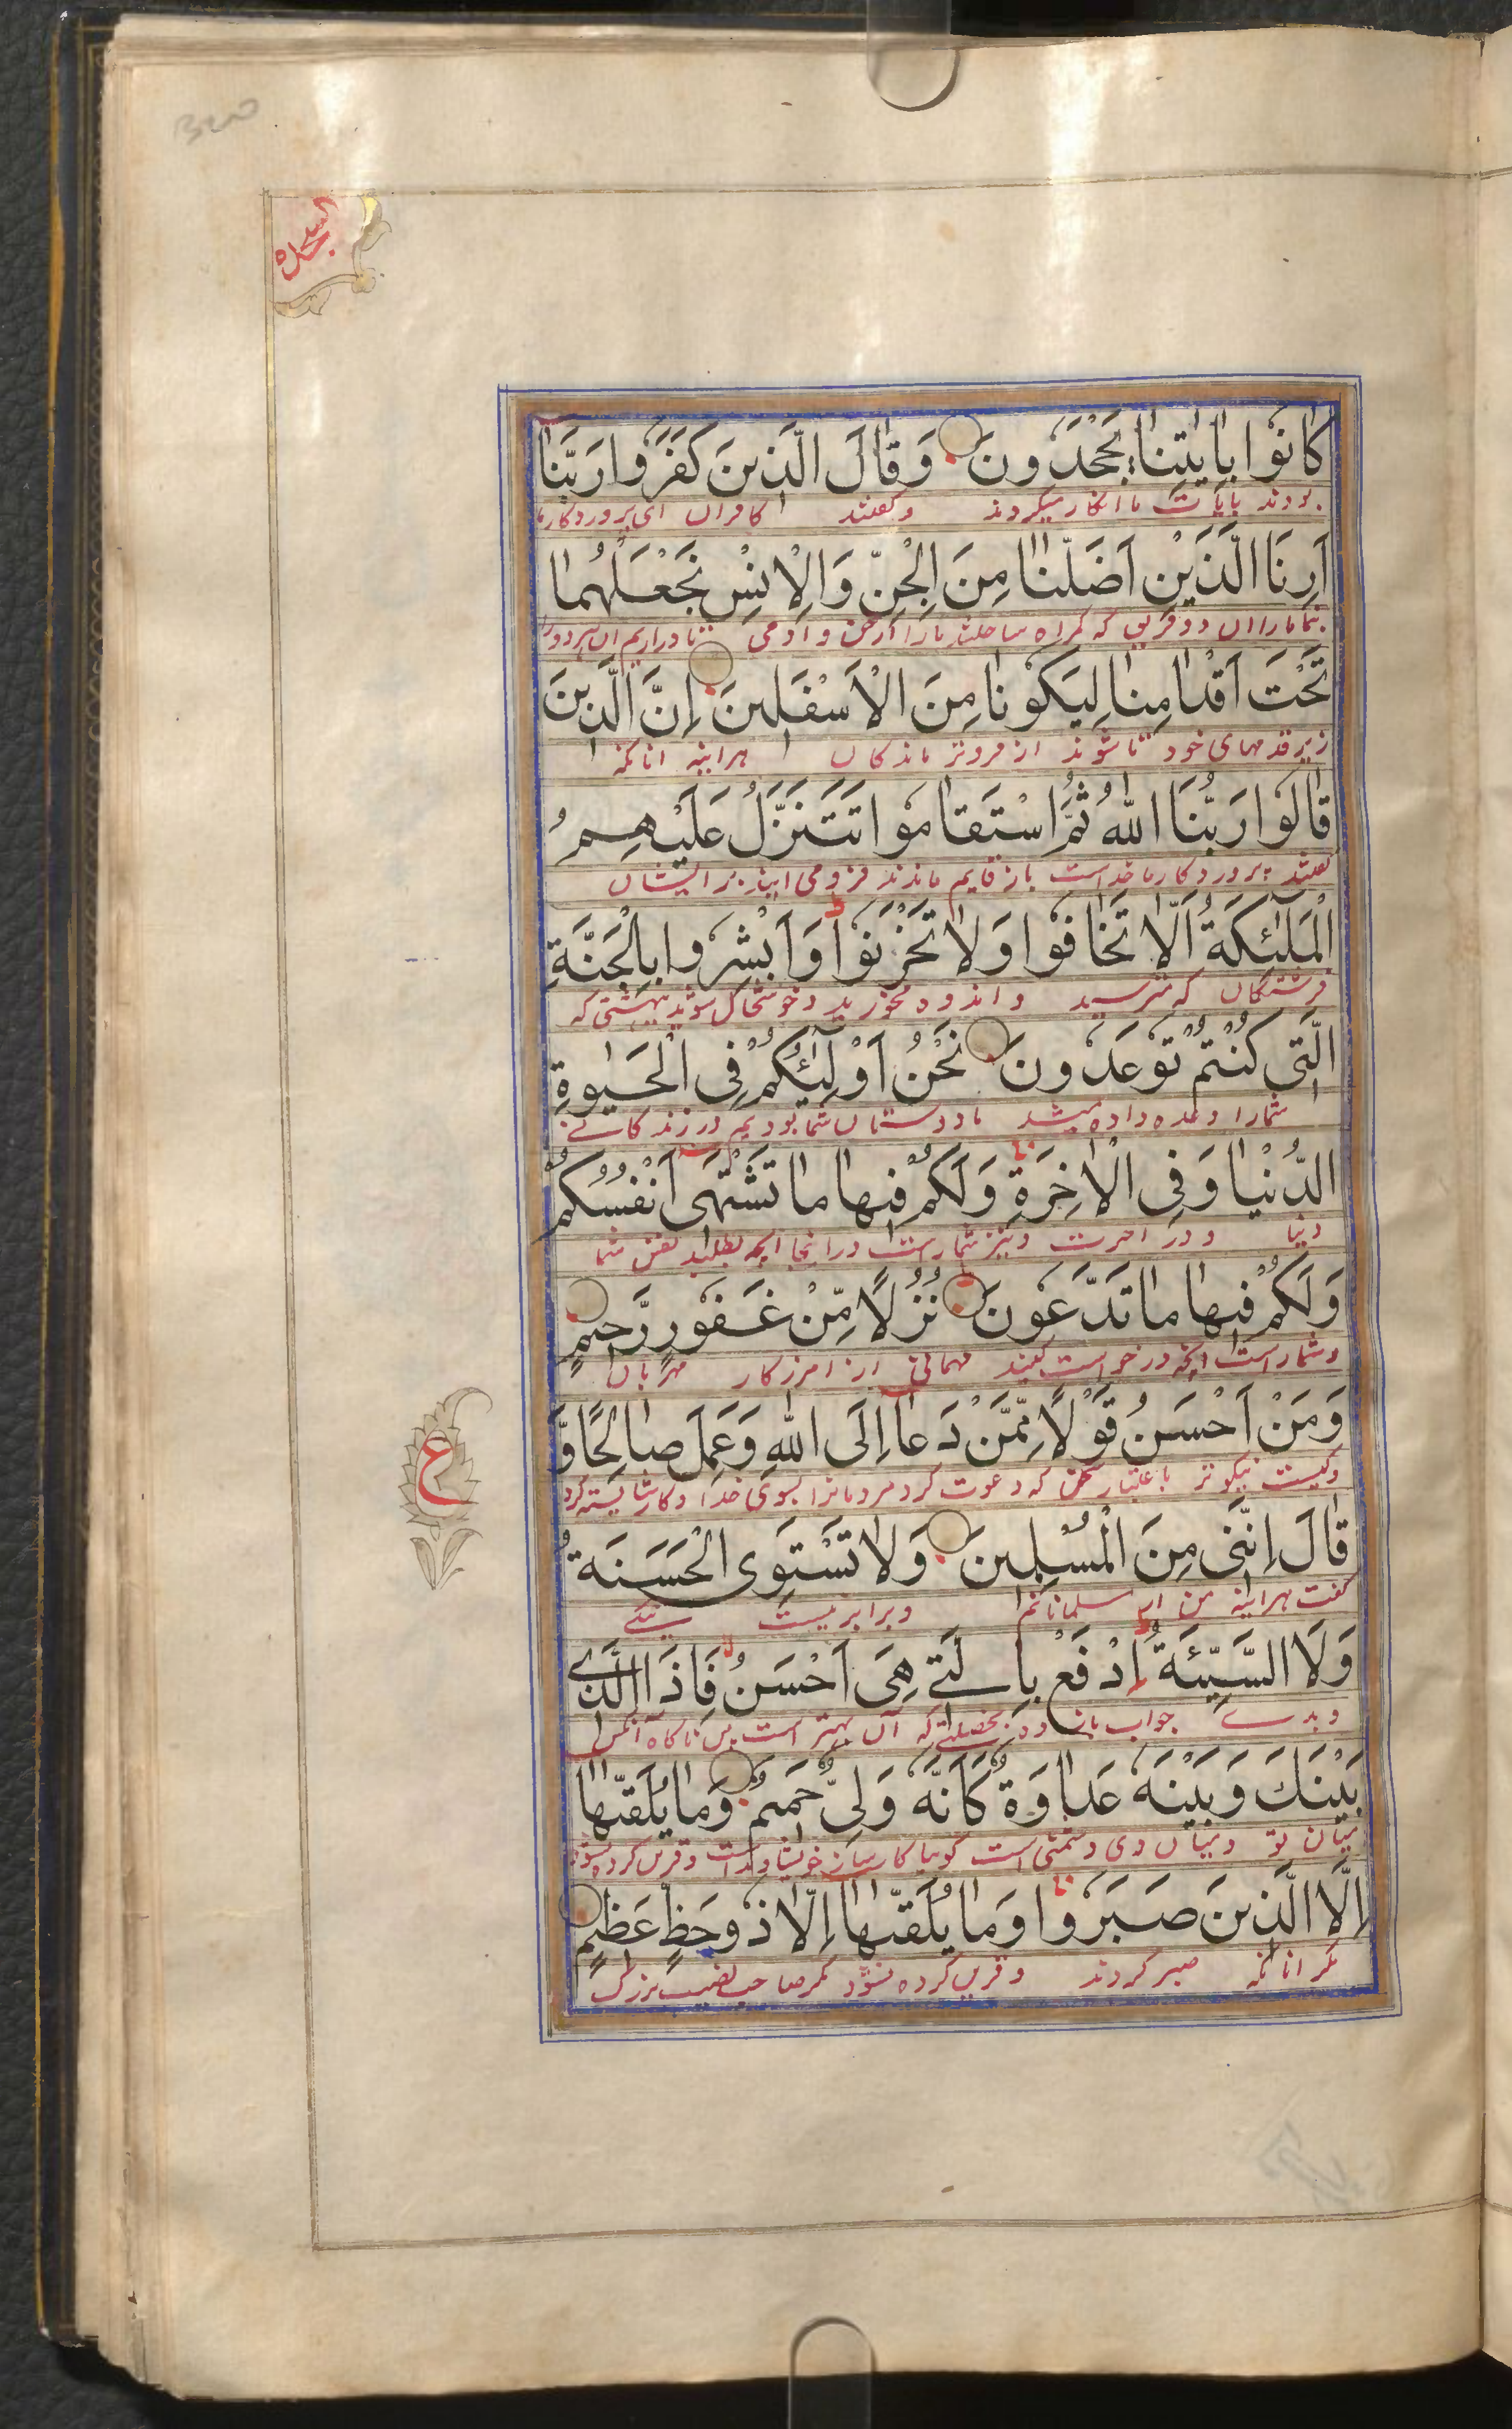 السجده
كَانُوا بِاٰيٰتِنَا يَجْحَدُونَ وَقَالَ الَّذِينَ كَفَرُوا رَبَّنَا
بودند بایات ما انکار میکردند و گفتند کافران ای پروردکار ما
اَرِنَا الَّذَيْنِ اَضَلّٰنَا مِنَ الْجِنِّ وَالْاِنْسِ نَجْعَلْهُمَا
بنما مارا ان دو فریق که کمراه ساختند مارا از جن و ادمی تا دراریم ان هردورا
تَحْتَ اَقْدَامِنَا لِيَكُونَا مِنَ الْاَسْفَلِينَ اِنَّ الَّذِينَ
زیر قدمهای خود تا شوند از فروتر ماندکان هراینه انانکه
قَالُوا رَبُّنَا اللّٰهُ ثُمَّ اسْتَقَامُوا تَتَنَزَّلُ عَلَيْهِمُ
گفتند پروردکار ما خداست باز قایم ماندند فرومی ایند بر ایشان
الْمَلٰٓئِكَةُ اَلَّا تَخَافُوا وَلَا تَحْزَنُوا وَاَبْشِرُوا بِالْجَنَّةِ
فرشتکان که مترسید و اندوه مخورید و خوشحال شوید ببهشتی که
الَّتِي كُنْتُمْ تُوعَدُونَ نَحْنُ اَوْلِيٰٓؤُكُمْ فِي الْحَيٰوةِ
شمارا وعده داده میشد ما دوستان شما بودیم در زندکانے
الدُّنْيَا وَفِي الْاٰخِرَةِ وَلَكُمْ فِيهَا مَا تَشْتَهِي اَنْفُسُكُمْ
دنیا و در اخرت و نیز شماراست درانجا انچه بطلبد نفس شما
وَلَكُمْ فِيهَا مَا تَدَّعُونَ نُزُلًا مِّنْ غَفُورٍ رَّحِيمٍ
و شماراست انچه درخواست کنید مهمانی از امرزکار مهربان
وَمَنْ اَحْسَنُ قَوْلًا مِّمَّنْ دَعَا اِلَى اللّٰهِ وَعَمِلَ صَالِحًا وَّ
و کیست نیکوتر باعتبار سخن که دعوت کرد مردمانرا بسوی خدا و کار شایسته کرد
ع
قَالَ اِنَّنِي مِنَ الْمُسْلِمِينَ وَلَا تَسْتَوِي الْحَسَنَةُ
گفت هراینه من از مسلمانانم و برابر نیست نیکے
وَلَا السَّيِّئَةُ اِدْفَعْ بِالَّتِے هِيَ اَحْسَنُ فَاِذَا الَّذِے
و بدے جواب باز ده بخصلتے که آن بهتر است پس ناکاه آنکس
بَيْنَكَ وَبَيْنَهُ عَدَاوَةٌ كَاَنَّهُ وَلِيٌّ حَمِيمٌ وَمَا يُلَقّٰىهَا
میان تو و میان وی دشمنی است کویا کارساز خویشاوند است و قرین کرده نشود
اِلَّا الَّذِينَ صَبَرُوا وَمَا يُلَقّٰىهَا اِلَّا ذُو حَظٍّ عَظِيمٍ
مکر انانکه صبر کردند و قرین کرده نشود مکر صاحب نصیب بزرک